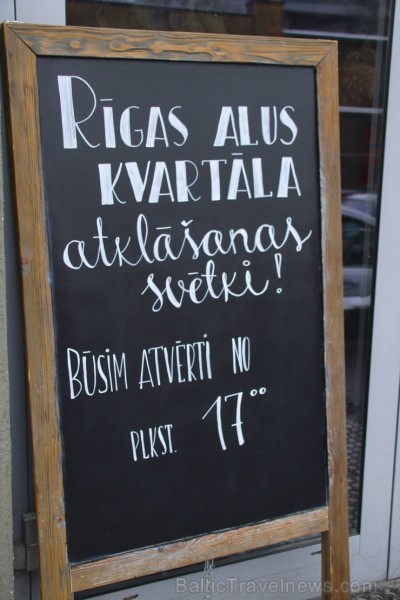 RĪGAS ALUS
KVARTĀLA
atklāšanas
svētki!
BŪSIM ATVĒRTI NO
PLKST. 17°°
BalticTravelnews.com